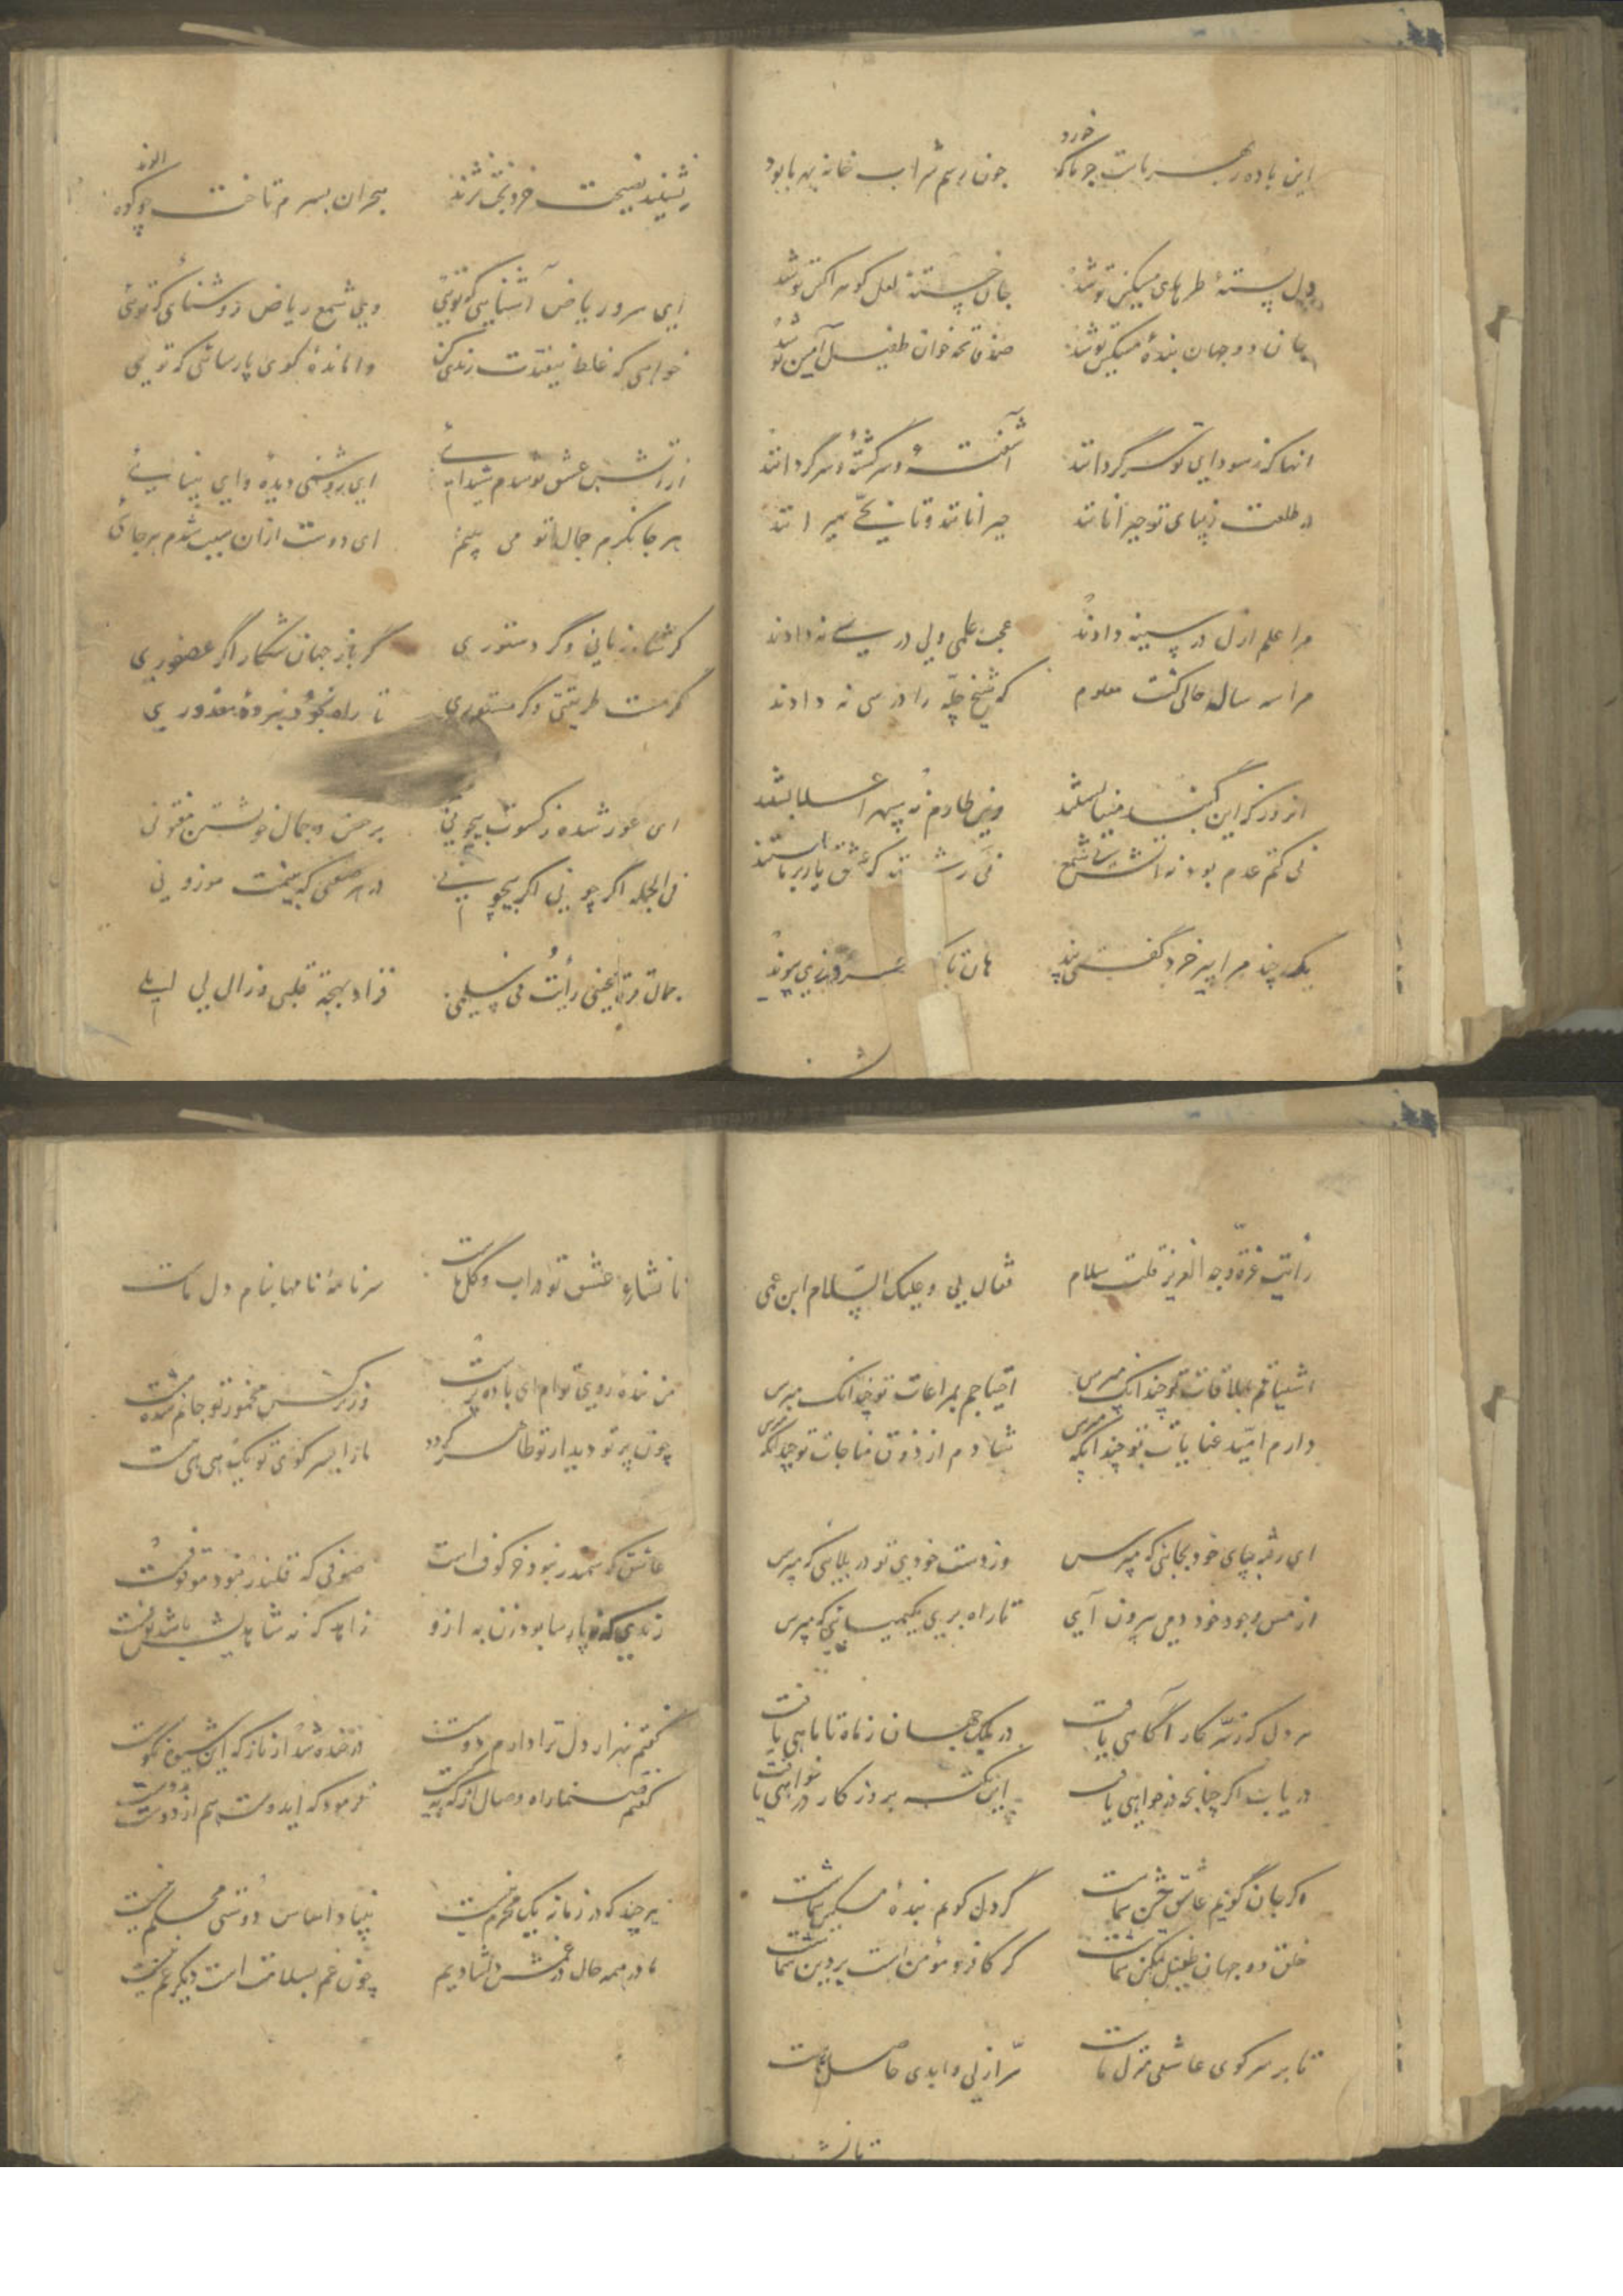 این باده ز بهر ماست جو ناکه خورد چون رسم شراب خانه بهر ما بود
دل بستهٔ طرهای مشکین تو شد جان خستهٔ لعل کوهر اکین تو شد
جان دو جهان بندهٔ مسکین تو شد صد فاتحه خوان طفیل آمین تو شد
انها که ز سودای تو سرگردانند آشفته و سرگشته و سرگردانند
در طلعت زیبای تو حیرانانند حیرانانند و تا نه میرانند
مرا علم ازل در سینه دادند عجب علمی ولی درسی نه دادند
مرا سه ساله حالی کشت معلوم که شیخ چله را در سی نه دادند
از روز که این کنبد مینا بستند وین طارم نه سپهر اعلا بستند
نی کتم عدم بود نه آتش نی شمع نی رشته که عشق یار بر ما بستند
یک چند مرا پیر خرد گفت پند هان تا
نشنید نصیحت خرد بحران بسرم تاخت چو کوه الوند
ای سرو ریاض آشنایی که تویی وی شمع ریاض روشنای که توئی
خواهی که غلط نیفتدت زندی کن واماندهٔ کوی پارسائی که تویی
از آتش عشق تو شدم شیدائی ای روشنی دیده و ای بینایی
هر جا نکرم جمال تو می بینم ای دوست ازان سبب شدم هرجائی
گر شاه زمانی و گر دستوری گر باز جهان شکار اگر عصفوری
گر مست طریقتی و گر مستوری تا راه بخود نبردهٔ معذوری
ای عور شده ز کسوت بیچونی بر حسن و جمال خویشتن مفتونی
فی الجمله اگر چونی اگر بیچونی در هر صفتی که بینمت موزونی
جمال قرة عینی رأیت فی سلمی فزاد بهجة قلبی و زال لی لیلی
رأیت غرة وجه العزیز قلت سلام فقال لی وعلیک السّلام ابن عمی
اشتیاقم بملاقات تو چندانک مپرس احتیاجم بمراعات تو چندانک مپرس
دارم امّید عنایات تو چندانکه مپرس شادم از ذوق مناجات تو چندانکه مپرس
ای رفته بپای خود بجایی که مپرس وز دست خودی تو در بلایی که مپرس
از مس وجود خود دمی بیرون آی تا راه بری بکیمیایی که مپرس
هر دل که ز سّر کار آگاهی یافت در یک جهان ز ماه تا ماهی یافت
دریاب اگر چنانچه در خواهی یافت این نکته بروز کار در خواهی یافت
گر جان گویم عاشق حسن شماست گر دل گویم بندهٔ مسکین شماست
خلق دو جهان طفیل تمکین شماست گر کافر و مؤمن است بر دین شماست
تا بر سر کوی عاشقی منزل ماست سّر ازلی و ابدی حاصل ماست
تا نشاءِ عشق تو در آب و گل ماست سرنامهٔ نامها بنام دل ماست
من بندهٔ روی توام ای باده پرست وز نرگس مخمور تو جانم شده مست
چون پرتو دیدار تو ظاهر گردد باز ایسر کوی تو یک هی هی هست
عاشق که سمندر نبود خر کوف است صوفی که قلندر نبود موقوفست
زندی که نه پارسا بود زن به ازو زاهد که نه شاهدیش باشد بوفست
گفتم بهزار دل ترا دارم دوست در خنده شد از ناز که این شیوه نکوست
گفتم صنما راه وصال از که بهست فرمود که ایدوست هم از دوست بدوست
هر چند که در زمانه یک محرم نیست بنیاد اساس دوستی محکم نیست
ما در همه حال در غمش دلشادیم چون غم بسلامت است دیگر غم نیست